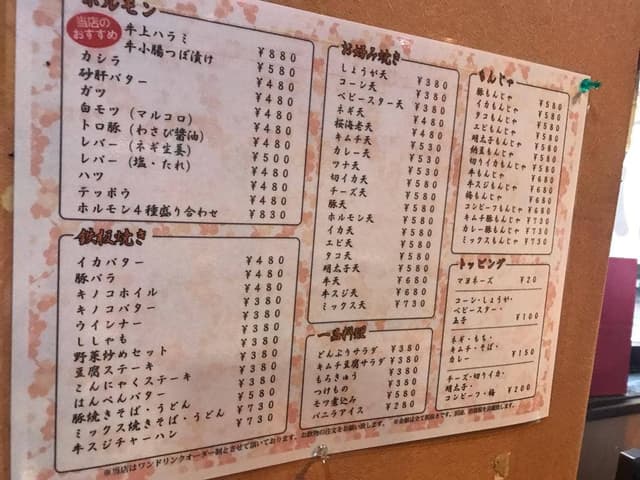 ホルモン
当店の
おすすめ
牛上ハラミ ¥880
牛小腸つぼ漬け ¥580
カシラ ¥480
砂肝バター ¥480
ガツ ¥480
白モツ (マルコロ) ¥480
トロ豚 (わさび醤油) ¥480
レバー (ネギ生姜) ¥500
レバー (塩・たれ) ¥480
ハツ ¥480
テッポウ ¥480
ホルモン4種盛り合わせ ¥830
鉄板焼き
イカバター ¥480
豚バラ ¥480
キノコホイル ¥380
キノコバター ¥380
ウインナー ¥380
ししゃも ¥380
野菜炒めセット ¥380
豆腐ステーキ ¥380
こんにゃくステーキ ¥380
はんぺんバター ¥580
豚焼きそば・うどん ¥730
ミックス焼きそば・うどん ¥730
牛スジチャーハン
お好み焼き
しょうが天 ¥380
コーン天 ¥380
ベビースター天 ¥380
ネギ天 ¥380
桜海老天 ¥480
キムチ天 ¥530
カレー天 ¥530
ツナ天 ¥530
切イカ天 ¥530
チーズ天 ¥580
豚天 ¥580
ホルモン天 ¥580
イカ天 ¥580
エビ天 ¥580
タコ天 ¥580
明太子天 ¥580
牛天 ¥680
牛スジ天 ¥680
ミックス天 ¥730
一品料理
どんぶりサラダ ¥380
キムチ豆腐サラダ ¥380
もろきゅう ¥380
つけもの ¥380
モツ煮込み ¥580
バニラアイス ¥280
もんじゃ
豚もんじゃ ¥580
イカもんじゃ ¥580
タコもんじゃ ¥580
エビもんじゃ ¥580
明太子もんじゃ ¥580
納豆もんじゃ ¥580
切りイカもんじゃ ¥580
牛もんじゃ ¥680
牛スジもんじゃ ¥680
梅もんじゃ
コンビーフもんじゃ ¥680
キムチ豚もんじゃ ¥680
カレー豚もんじゃ
ミックスもんじゃ ¥730
トッピング
マヨネーズ ¥20
コーン・しょうが・
ベビースター・
玉子 ¥100
ネギ・もち・
キムチ・そば・
カレー ¥150
チーズ・切りイカ・
明太子・
コンビーフ・梅 ¥200
※当店はワンドリンクオーダー制とさせて頂いております。お飲物の注文をお願い致します。